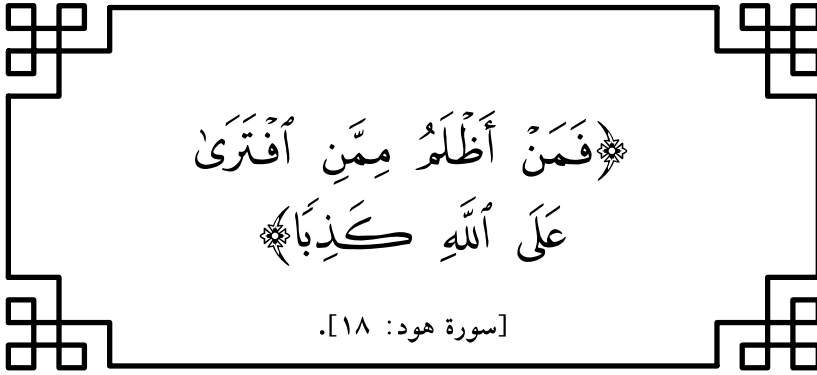 ﴿فَمَنْ أَظْلَمُ مِمَّنِ ٱفْتَرَىٰ
عَلَى ٱللَّهِ كَذِبًا﴾
[سورة هود: ١٨].